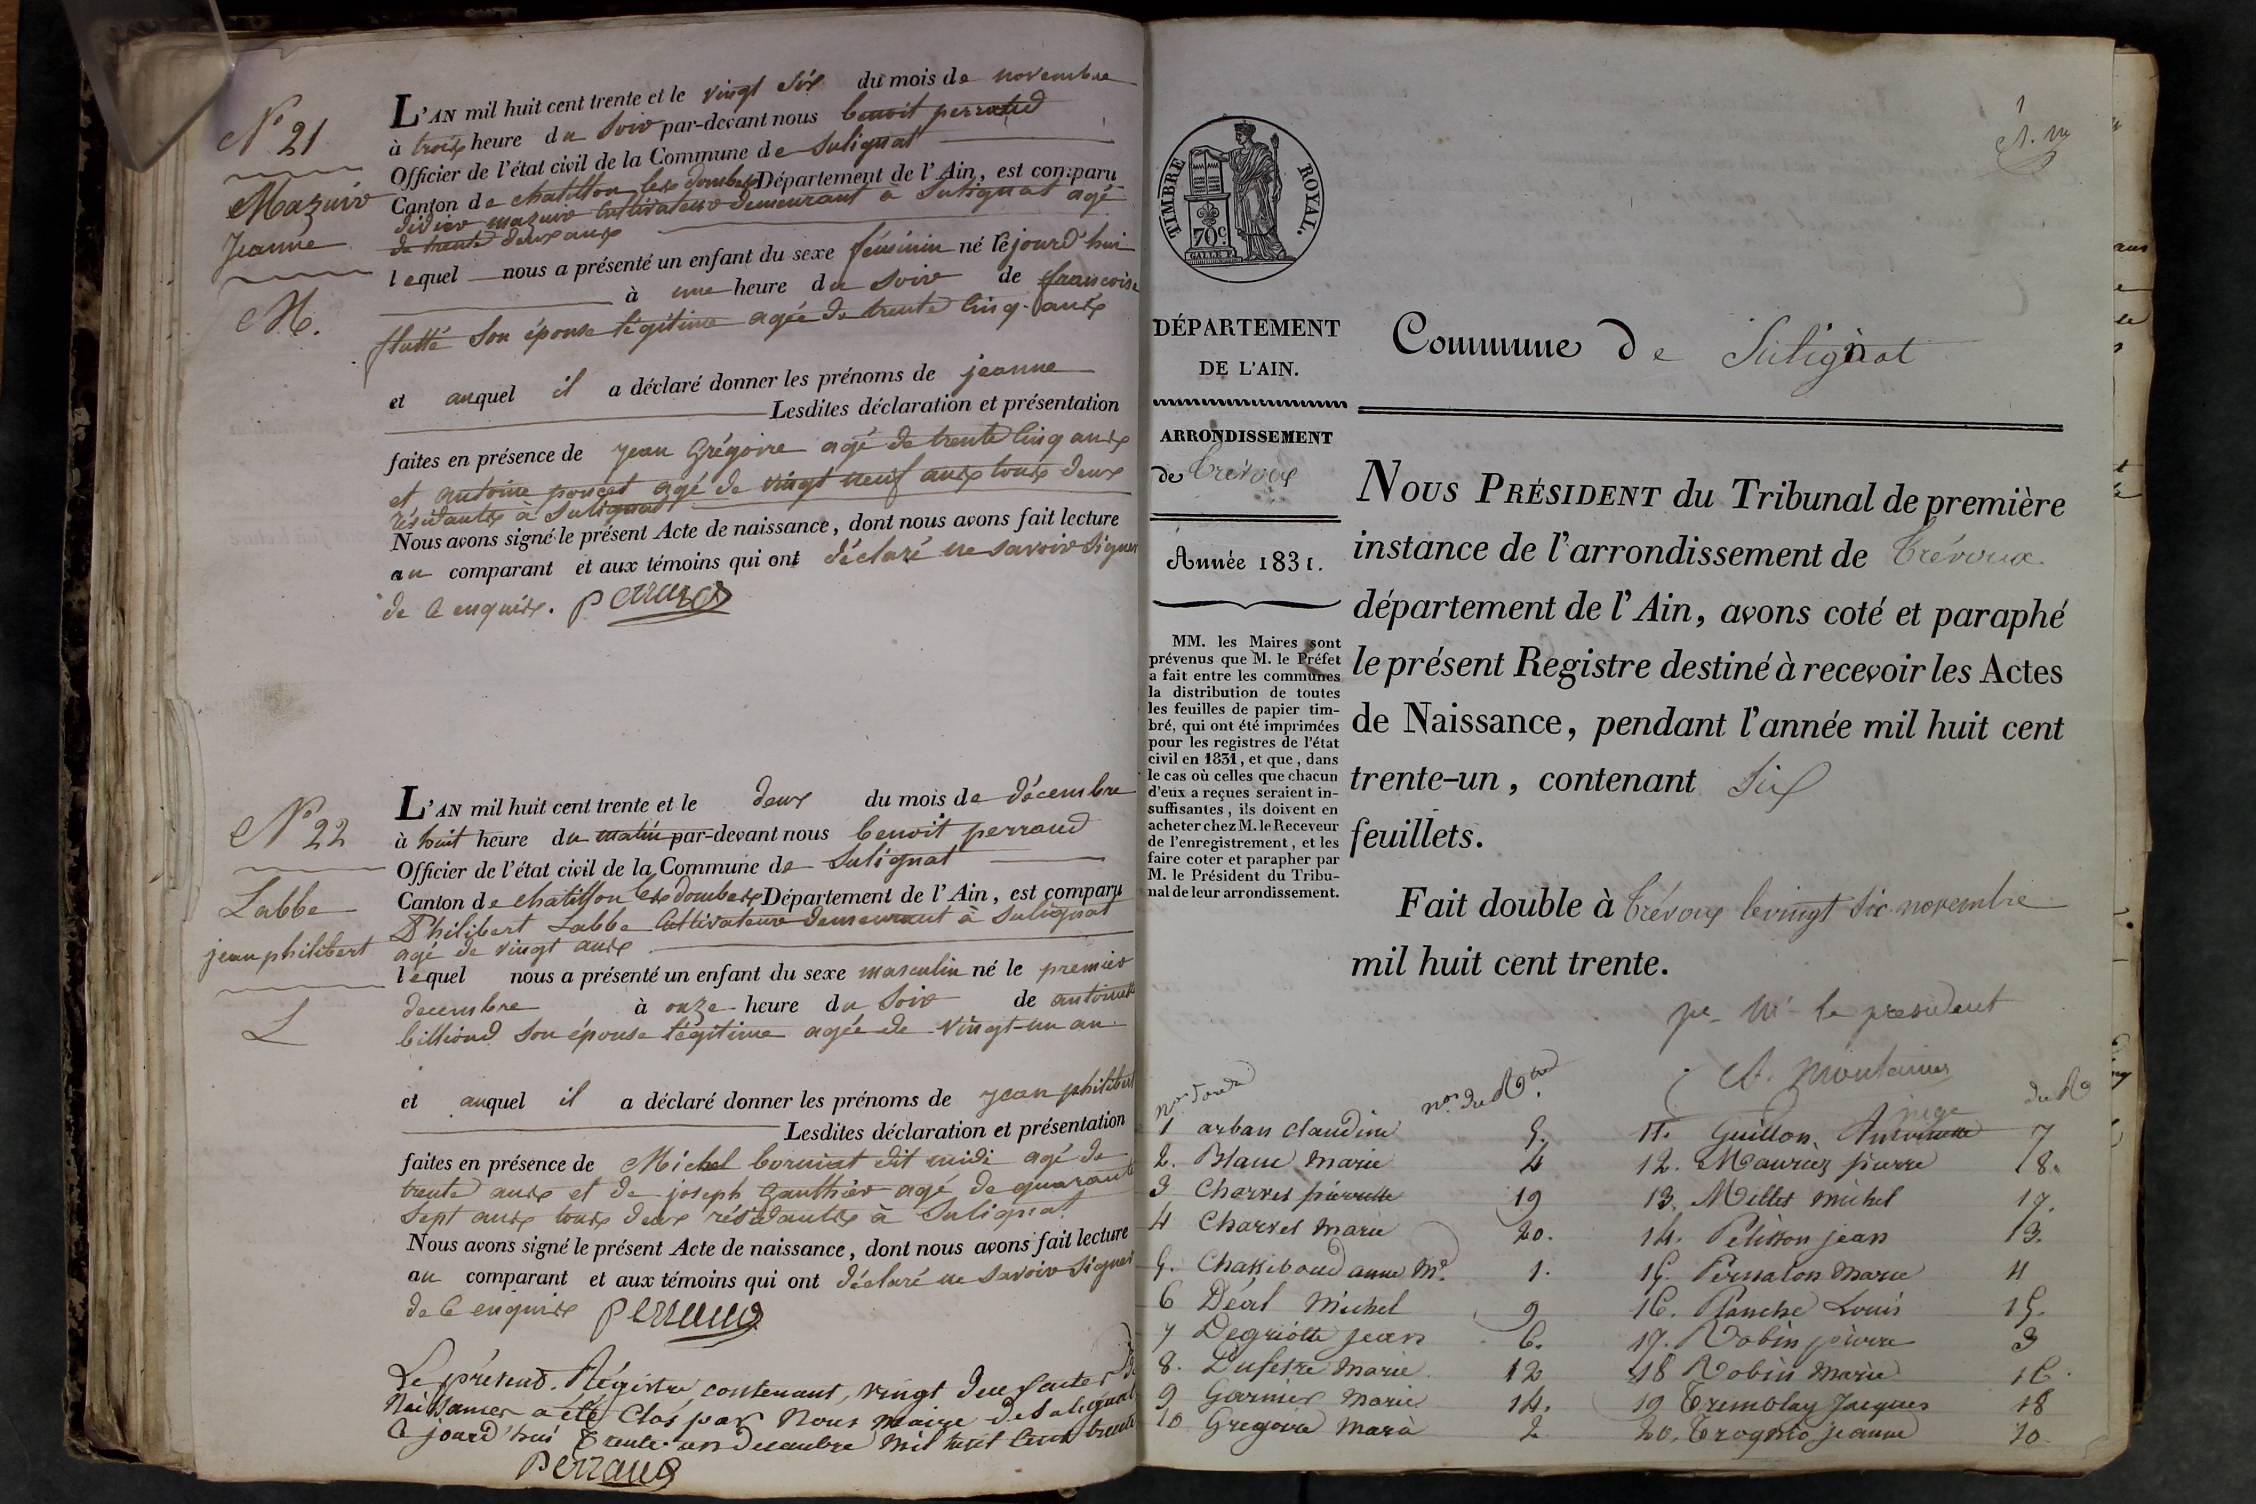 N° 21
Mazuir
Jeanne
M.
L'AN mil huit cent trente et le vingt six du mois de novembre
à trois heure du soir par-devant nous benoit perraud
Officier de l'état civil de la Commune de Sulignat
Canton de chatillon les dombes Département de l'Ain, est comparu
didier mazuir cultivateur demeurant à Sulignat agé
de trente deux ans
lequel nous a présenté un enfant du sexe féminin né cejourd'hui
à une heure du soir de francoise
flutté son épouse légitime agée de trente cinq ans
et auquel il a déclaré donner les prénoms de jeanne
Lesdites déclaration et présentation
faites en présence de jean Grégoire agé de trente cinq ans
et antoine poncet agé de vingt neuf ans tous deux
résidants à Sulignat
Nous avons signé le présent Acte de naissance, dont nous avons fait lecture
au comparant et aux témoins qui ont déclaré ne savoir signer
de ce enquis. Perraud
N° 22
Labbe
jean philibert
L
L'AN mil huit cent trente et le deux du mois de décembre
à huit heure du matin par-devant nous benoit perraud
Officier de l'état civil de la Commune de Sulignat
Canton de chatillon les dombes Département de l'Ain, est comparu
Philibert Labbe cultivateur demeurant à Sulignat
agé de vingt ans
lequel nous a présenté un enfant du sexe masculin né le premier
decembre à onze heure du soir de antoinette
billioud son épouse légitime agée de vingt-un an
et auquel il a déclaré donner les prénoms de jean philibert
Lesdites déclaration et présentation
faites en présence de Michel borniat dit midi agé de
trente ans et de joseph Gauthier agé de quarante
sept ans tous deux résidants à Sulignat
Nous avons signé le présent Acte de naissance, dont nous avons fait lecture
au comparant et aux témoins qui ont déclaré ne savoir signer
de ce enquis Perraud
Le présent Régistre contenant vingt deux actes de
Naissances a été Clos par Nous maire de Sulignat
Ce jourd'hui trente un decembre mil huit cent trente
Perraud
1
TIMBRE ROYAL.
70 c.
DÉPARTEMENT
DE L'AIN.
ARRONDISSEMENT
de Trévoux
Année 1831.
MM. les Maires sont
prévenus que M. le Préfet
a fait entre les communes
la distribution de toutes
les feuilles de papier tim-
bré, qui ont été imprimées
pour les registres de l'état
civil en 1831, et que, dans
le cas où celles que chacun
d'eux a reçues seraient in-
suffisantes, ils doivent en
acheter chez M. le Receveur
de l'enregistrement, et les
faire coter et parapher par
M. le Président du Tribu-
nal de leur arrondissement.
Commune de Sulignat
NOUS PRÉSIDENT du Tribunal de première
instance de l'arrondissement de Trévoux
département de l'Ain, avons coté et paraphé
le présent Registre destiné à recevoir les Actes
de Naissance, pendant l'année mil huit cent
trente-un, contenant Six
feuillets.
Fait double à Trévoux le vingt six novembre
mil huit cent trente.
pr Mr le president
juge
nos d'ordre nos du Rgtre
1 arban claudine 5
2. Blanc Marie 4
3 Charvet pierrette 19
4 Charvet Marie 20.
5. Chassiboud anne Me. 1.
6 Déal Michel 9
7 Degriotte jean 6.
8. Dufetre Marie 12
9 Garnier Marie 14.
10 Gregoire Marie 2
11. Guillon, Antoinette 7
12. Maurier pierre 8.
13. Millet michel 17.
14. Pelisson jean 13.
15. Pernaton Marie 11
16. Planche Louis 15.
17. Robin pierre 3
18 Robin Marie 16.
19 Tremblay Jacques 18
20. Trognio jeanne 10